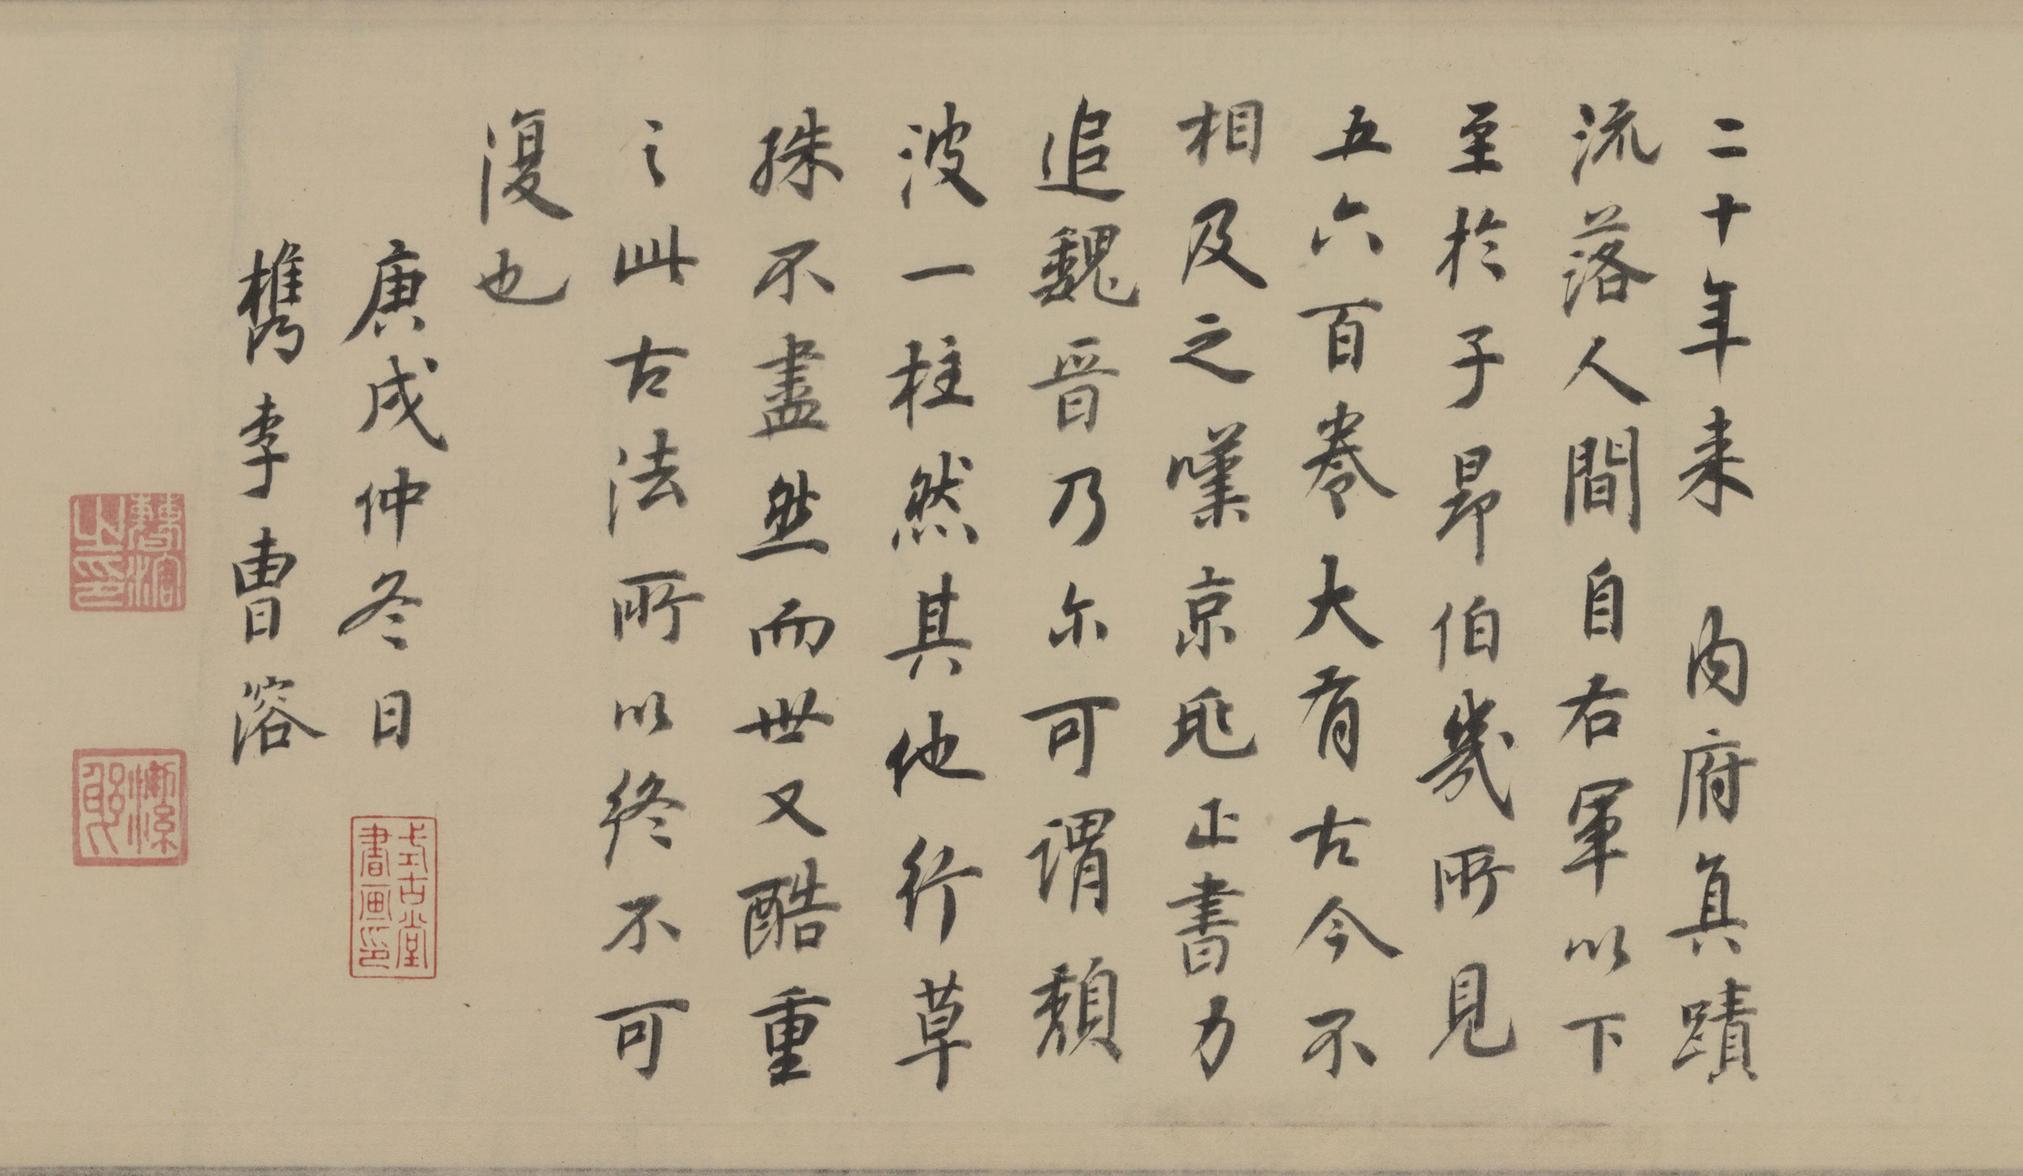 二十年来 内府真蹟
流落人間自右軍以下
至於子昂伯幾所見
五六百卷大有古今不
相及之嘆京兆正書力
追魏晋乃尔可謂頹
波一柱然其他行草
殊不盡然而世又酷重
之此古法所以終不可
復也
庚戌仲冬日
式古堂書画印
檇李曹溶
曹溶之印
潔躬